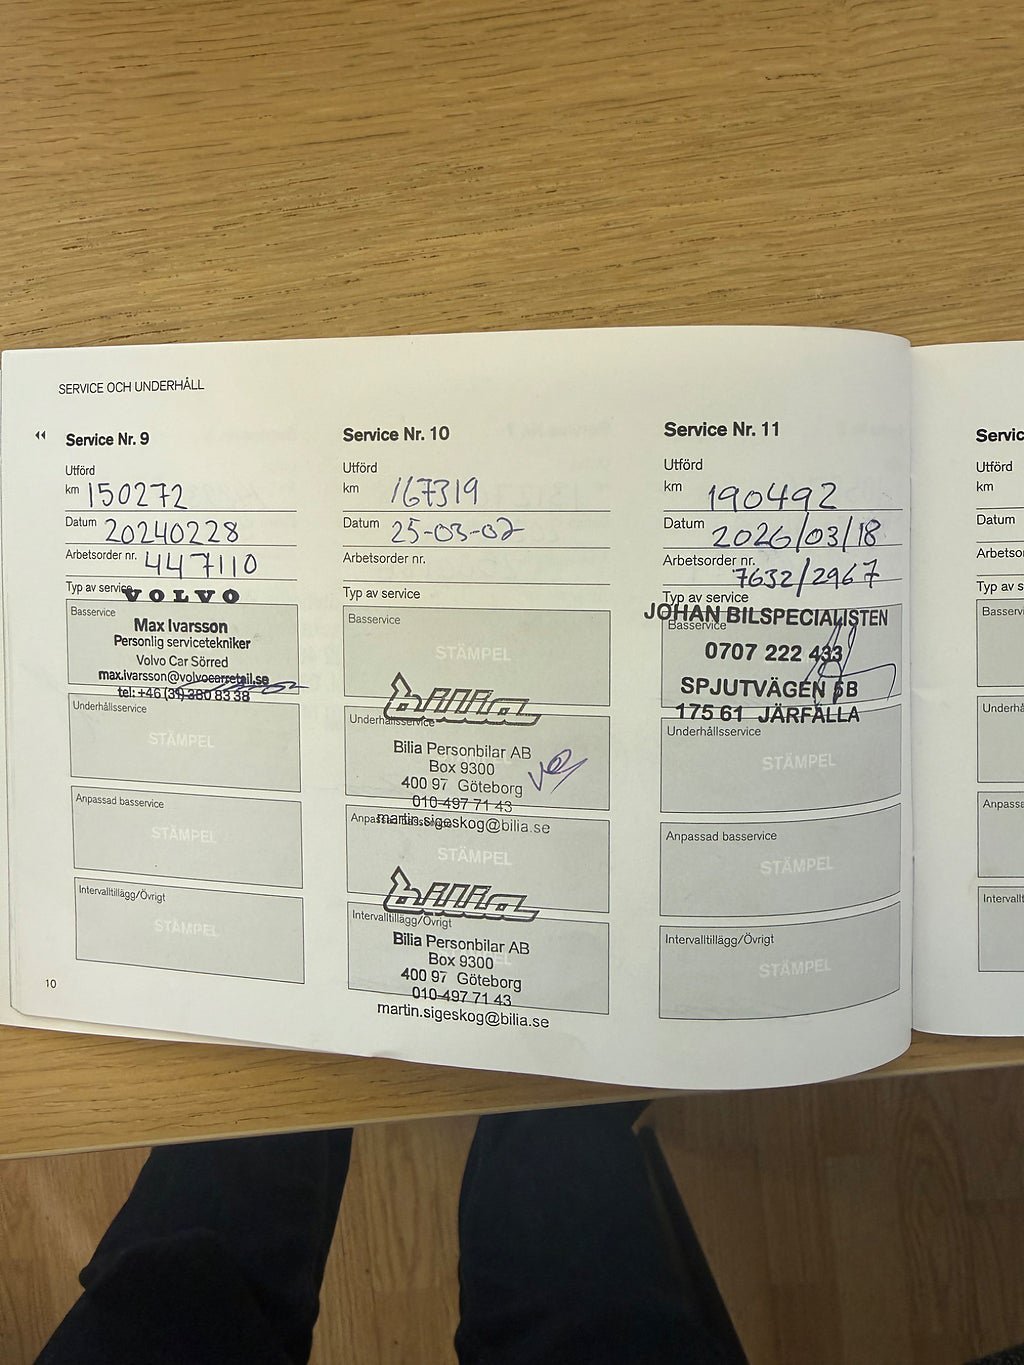 SERVICE OCH UNDERHÅLL
Service Nr. 9
Utförd
km 150272
Datum 20240228
Arbetsorder nr. 447110
Typ av service
VOLVO
Basservice
Max Ivarsson
Personlig servicetekniker
Volvo Car Sörred
max.ivarsson@volvocarretail.se
tel: +46 (31) 380 83 38
Underhållsservice
STÄMPEL
Anpassad basservice
STÄMPEL
Intervalltillägg/Övrigt
STÄMPEL
10
Service Nr. 10
Utförd
km 167319
Datum 25-03-07
Arbetsorder nr.
Typ av service
Basservice
STÄMPEL
bilia
Underhållsservice
Bilia Personbilar AB
Box 9300
400 97 Göteborg
010-497 71 43
martin.sigeskog@bilia.se
Anpassad basservice
STÄMPEL
bilia
Intervalltillägg/Övrigt
Bilia Personbilar AB
Box 9300
400 97 Göteborg
010-497 71 43
martin.sigeskog@bilia.se
Service Nr. 11
Utförd
km 190492
Datum 2026/03/18
Arbetsorder nr.
7632/2967
Typ av service
JOHAN BILSPECIALISTEN
Basservice
0707 222 433
SPJUTVÄGEN 5B
175 61 JÄRFÄLLA
Underhållsservice
STÄMPEL
Anpassad basservice
STÄMPEL
Intervalltillägg/Övrigt
STÄMPEL
Servic
Utförd
km
Datum
Arbetso
Typ av se
Basservi
Underhå
Anpassa
Intervallt